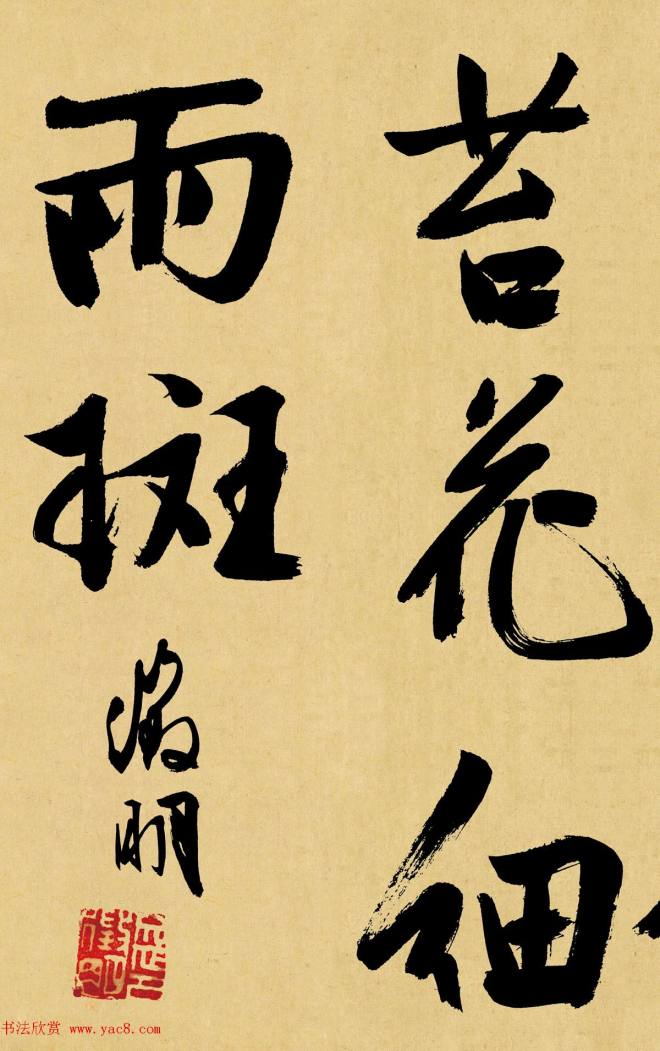 苔花細
雨斑
徵明
书法欣赏 www.yac8.com